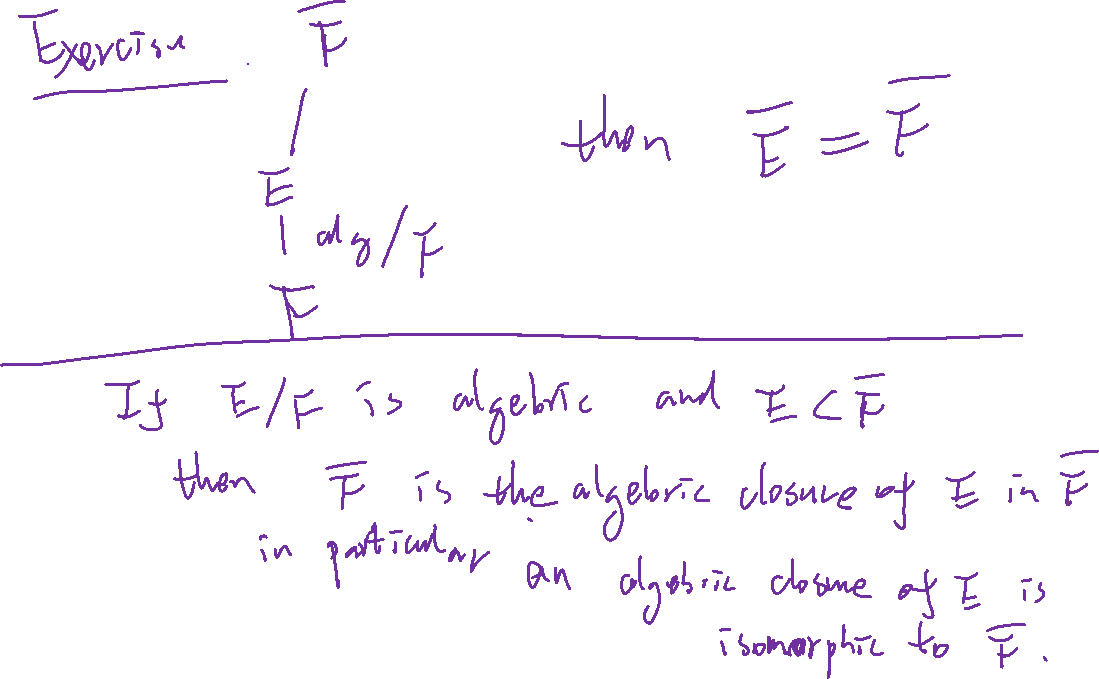 Exercise.
F̅
/
E
| alg/F
F
then E̅ = F̅
If E/F is algebric and E < F̅
then F̅ is the algebric closure of E in F̅
in particular an algebric closure of E is
isomorphic to F̅.